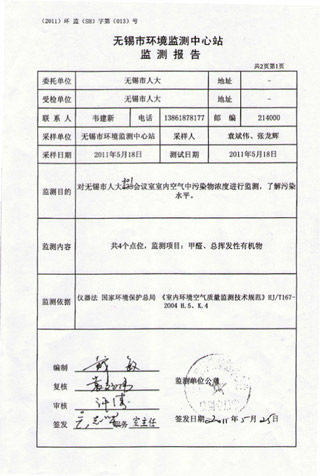 (2011)环 监(SH)字第(013)号
无锡市环境监测中心站
监 测 报 告
共2页第1页
委托单位 无锡市人大 地址 -
受检单位 无锡市人大 地址 -
联 系 人 韦建新 电话 13861878177 邮 编 214000
采样单位 无锡市环境监测中心站 采样人 袁斌伟、张龙辉
采样日期 2011年5月18日 测试日期 2011年5月18日
监测目的 对无锡市人大301会议室室内空气中污染物浓度进行监测,了解污染
水平。
监测内容 共4个点位,监测项目:甲醛、总挥发性有机物
监测依据 仪器法 国家环境保护总局 《室内环境空气质量监测技术规范》HJ/T167-
2004 H.5、K.4
编制
复核
监测单位公章
审核
签发 职务 室主任
签发日期 2011年5月25日